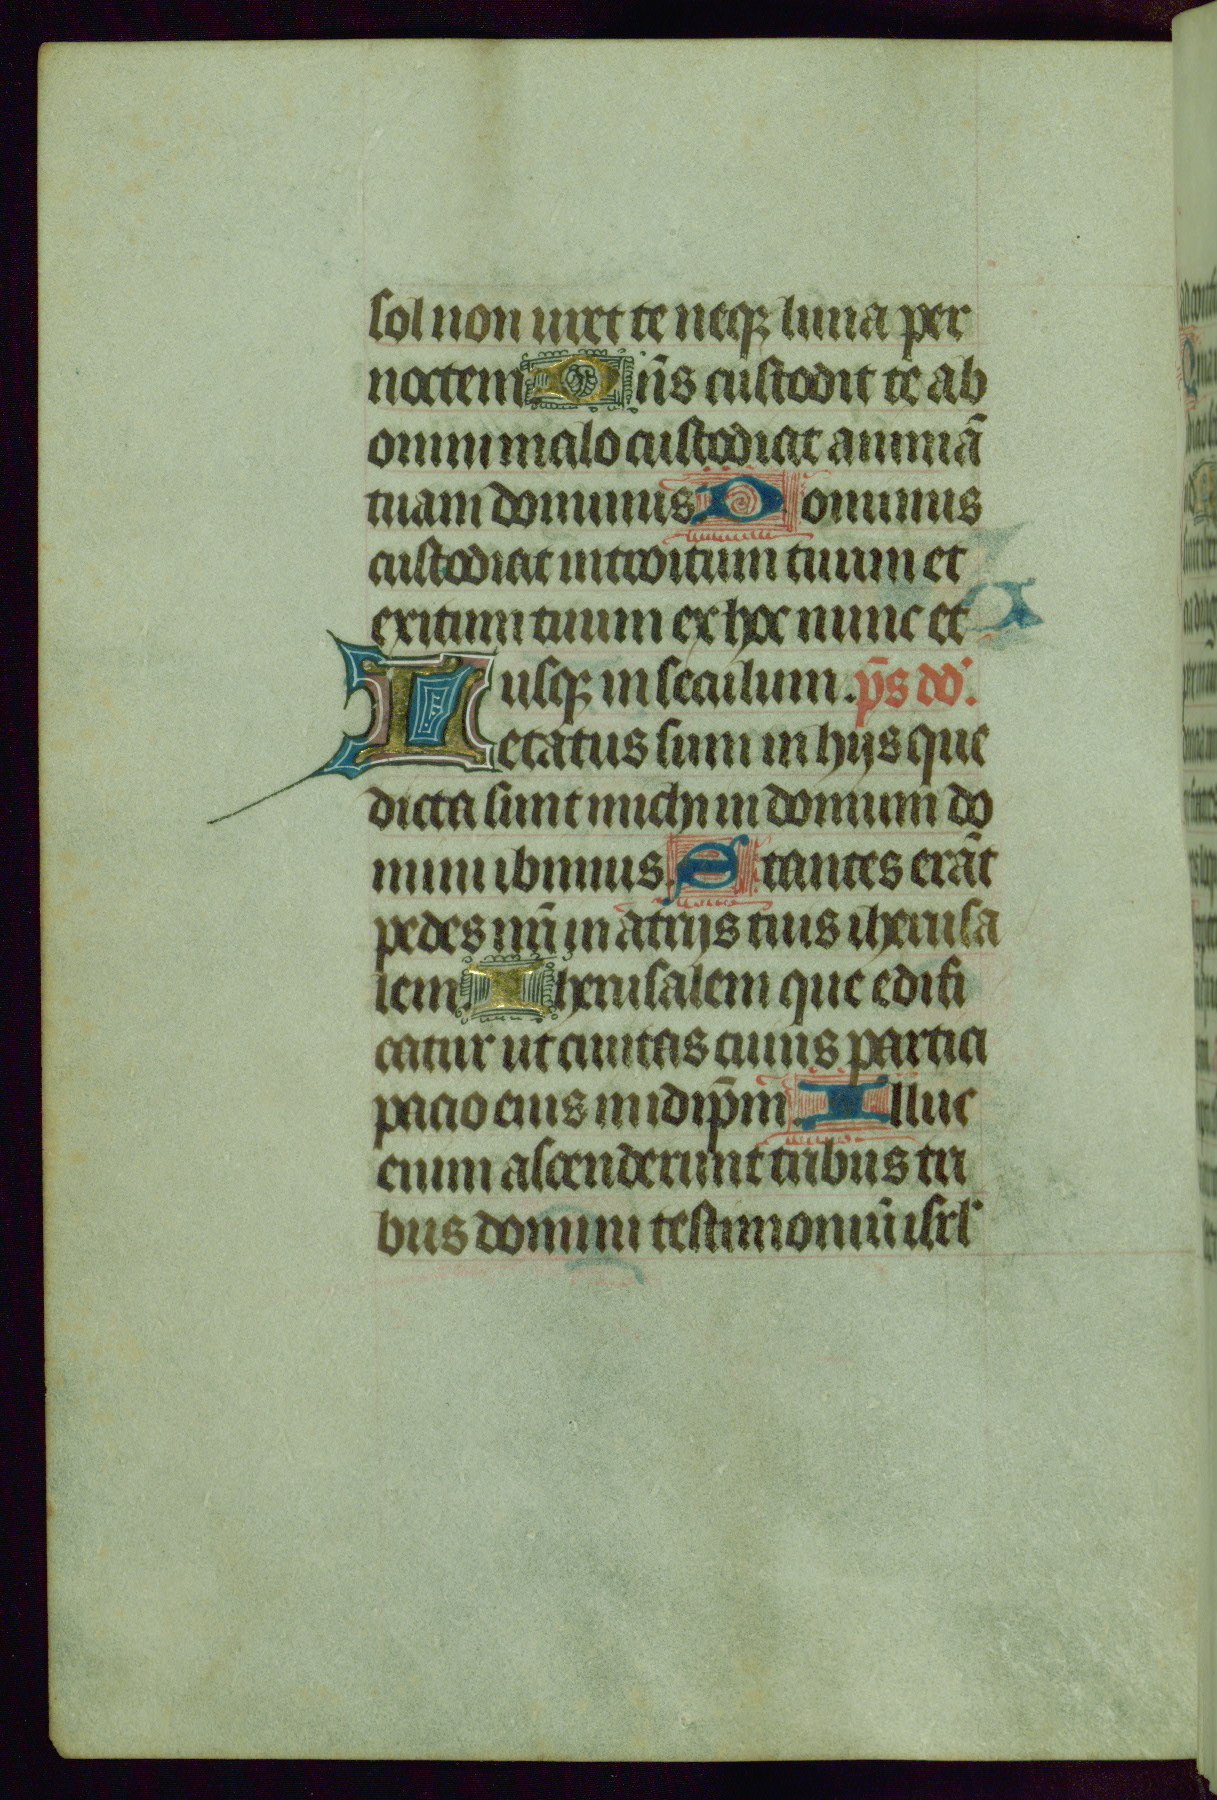 sol non uret te neqꝫ luna per
noctem Dn̄s custodit te ab
omni malo custodiat animā
tuam dominus. Dominus
custodiat introitum tuum et
exitum tuum ex hoc nunc et
usqꝫ in seculum. p̄s dd'.
Letatus sum in hijs que
dicta sunt michi in domum do
mini ibimus. Stantes erāt
pedes nr̄i in atrijs tuis iherusa
lem. Iherusalem que edifi
catur ut ciuitas cuius partici
pacio eius in idip̄m. Illuc
enim ascenderunt tribus tri
bus domini testimoniū isrl'